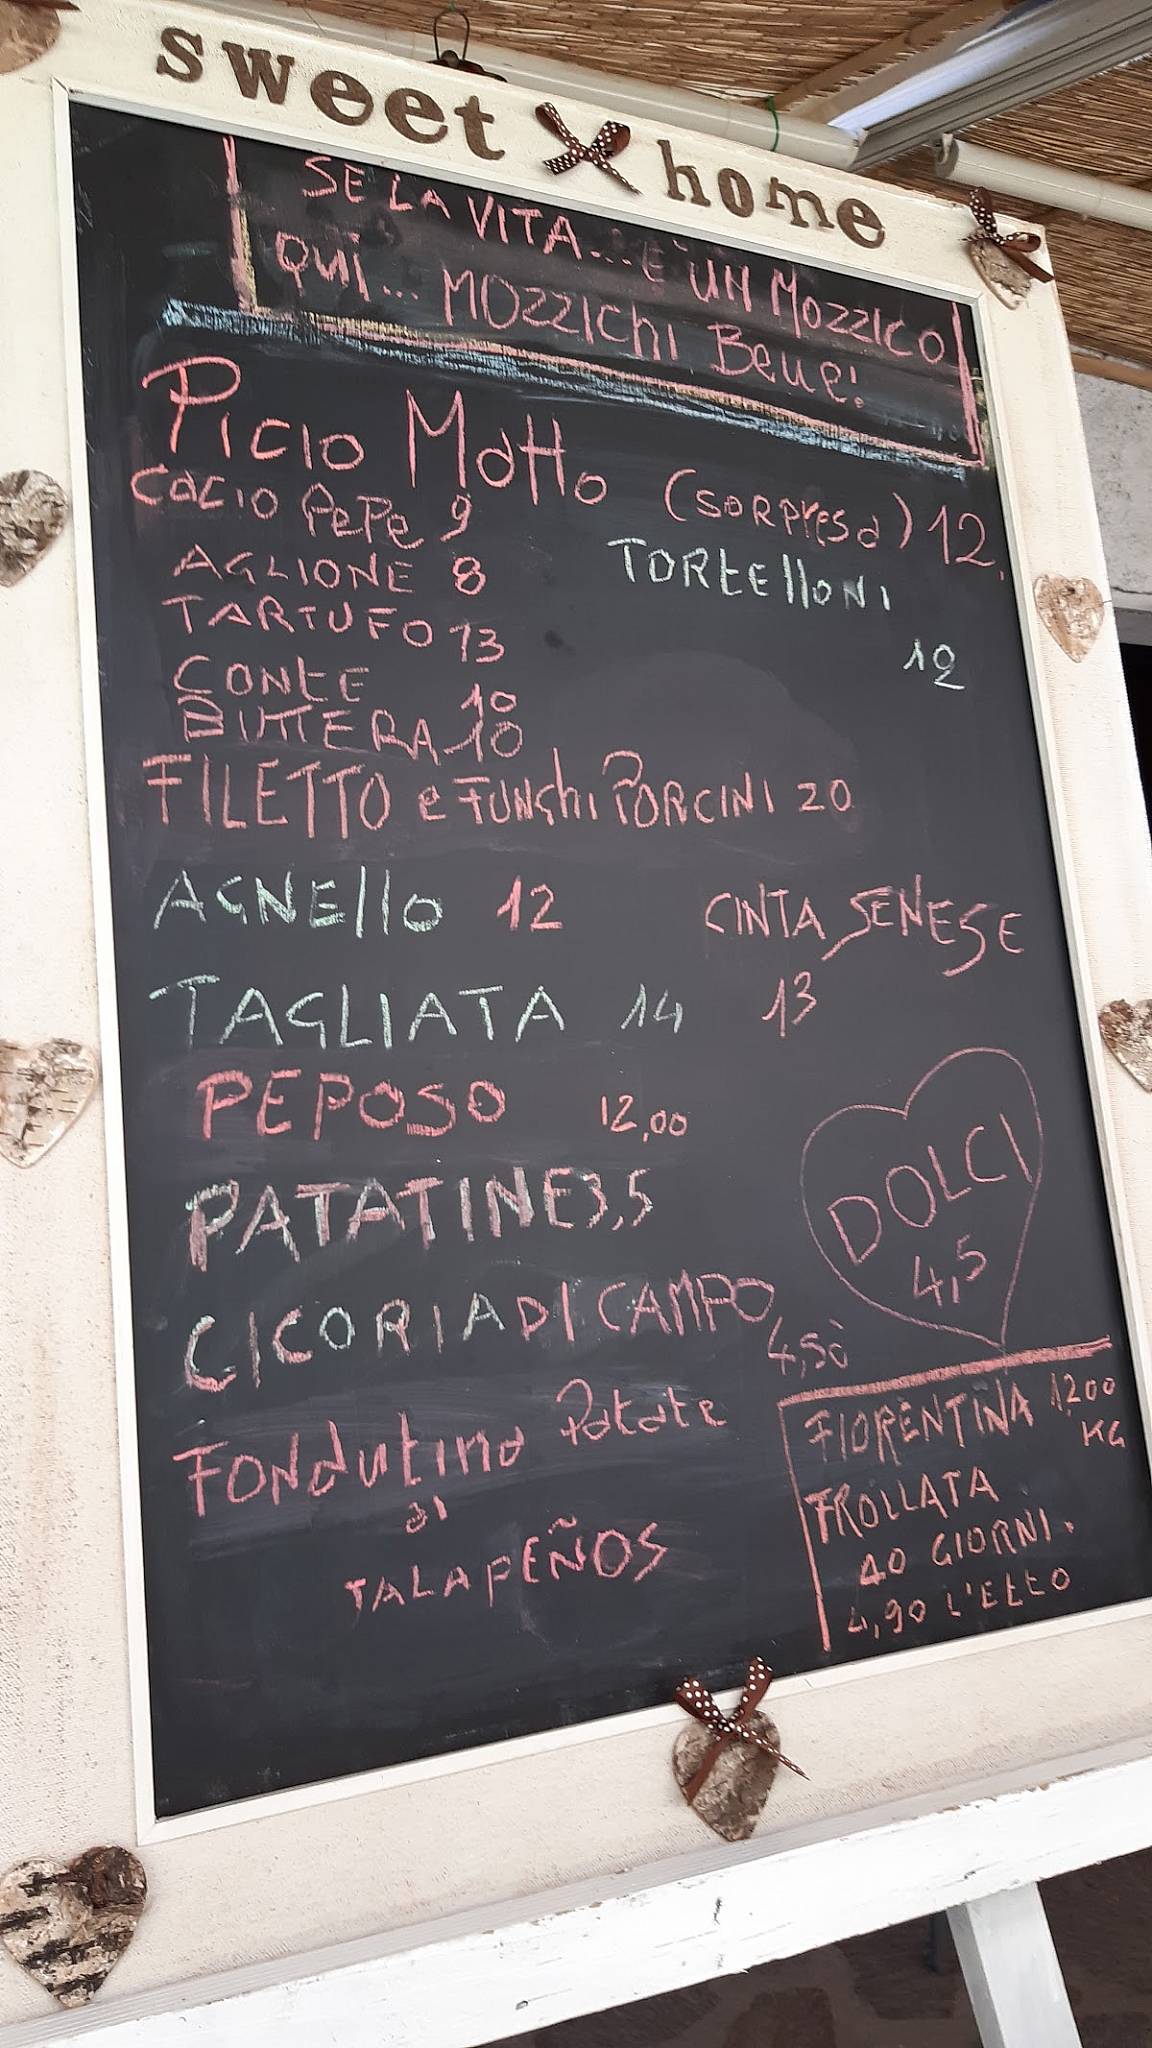 sweet home
SE LA VITA... È UN MOZZICO
QUI... MOZZICHI BENE!
PICIO MATTO (SORPRESA) 12,
CACIO PEPE 9
AGLIONE 8
TORTELLONI
TARTUFO 13
12
CONTE 10
BUTTERA 10
FILETTO e FUNGHI PORCINI 20
AGNELLO 12
CINTA SENESE
13
TAGLIATA 14
PEPOSO 12,00
PATATINE 3,5
DOLCI
4,5
CICORIA DI CAMPO
4,50
FONDUTINO PATATE
DI
JALAPEÑOS
FIORENTINA 1,200
KG
FROLLATA
40 GIORNI.
4,90 L'ETTO